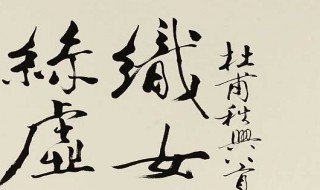 杜甫秋興八首
織女
絲虛